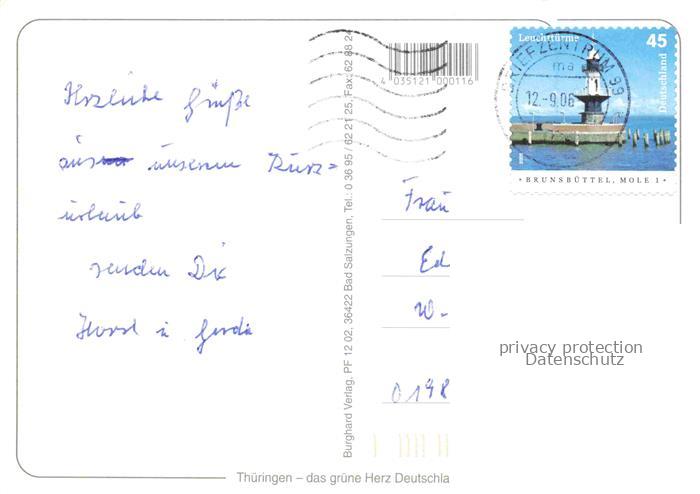 Herzliche Grüße
aus unserem Kurz=
urlaub
senden Dir
Horst u Gerda
Burghard Verlag, PF 12 02, 36422 Bad Salzungen, Tel.: 0 36 95 / 62 21 25, Fax: 62 88 2
4 035121 000116
BRIEFZENTRUM 99
ma
12.-9.06
Leuchttürme
45
Deutschland
• BRUNSBÜTTEL, MOLE 1 •
Frau
Ed
W-
privacy protection
Datenschutz
Thüringen – das grüne Herz Deutschla